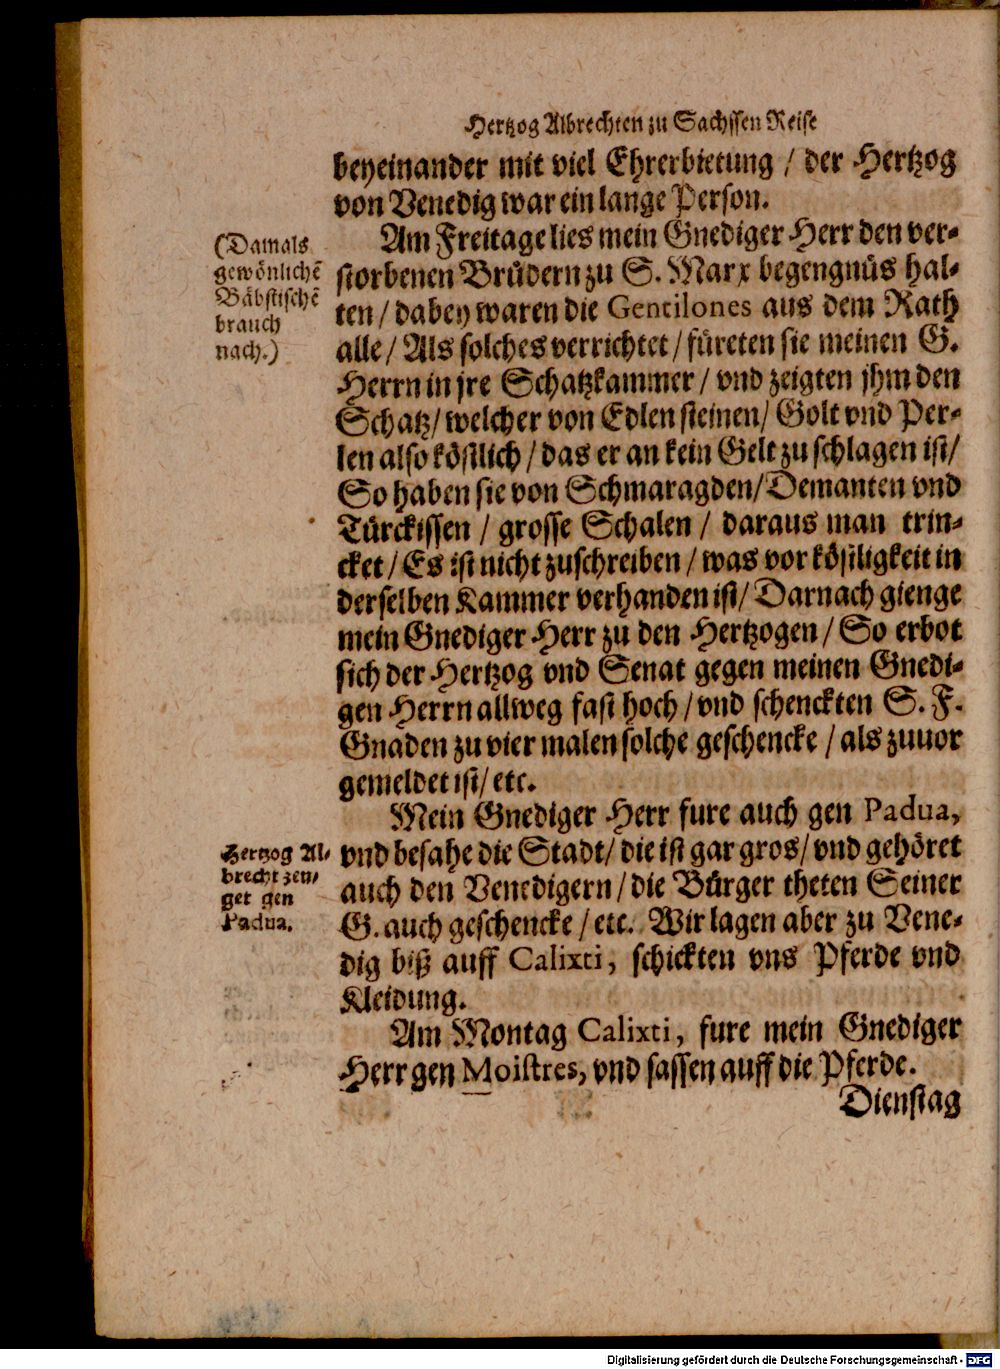 Hertzog Albrechten zu Sachssen Reise
beyeinander mit viel Ehrerbietung / der Hertzog
von Venedig war ein lange Person.
Am Freitage lies mein Gnediger Herr den ver-
storbenen Brüdern zu S. Marx begengnüs hal-
ten / dabey waren die Gentilones aus dem Rath
alle / Als solches verrichtet / füreten sie meinen G.
Herrn in jre Schatzkammer / vnd zeigten jhm den
Schatz / welcher von Edlen steinen / Golt vnd Per-
len also köstlich / das er an kein Gelt zu schlagen ist /
So haben sie von Schmaragden / Demanten vnd
Türckissen / grosse Schalen / daraus man trin-
cket / Es ist nicht zuschreiben / was vor kösiligkeit in
derselben Kammer verhanden ist / Darnach gienge
mein Gnediger Herr zu den Hertzogen / So erbot
sich der Hertzog vnd Senat gegen meinen Gnedi-
gen Herrn allweg fast hoch / vnd schenckten S. F.
Gnaden zu vier malen solche geschencke / als zuuor
gemeldet ist / etc.
Mein Gnediger Herr fure auch gen Padua,
vnd besahe die Stadt / die ist gar gros / vnd gehöret
auch den Venedigern / die Bürger theten Seiner
G. auch geschencke / etc. Wir lagen aber zu Vene-
dig biß auff Calixti, schickten vns Pferde vnd
Kleidung.
Am Montag Calixti, fure mein Gnediger
Herr gen Moistres, vnd sassen auff die Pferde.
Dienstag
(Damals
gewönlichē
Bäbstischē
brauch
nach.)
Hertzog Al-
brecht zeu-
get gen
Padua.
Digitalisierung gefördert durch die Deutsche Forschungsgemeinschaft - DFG